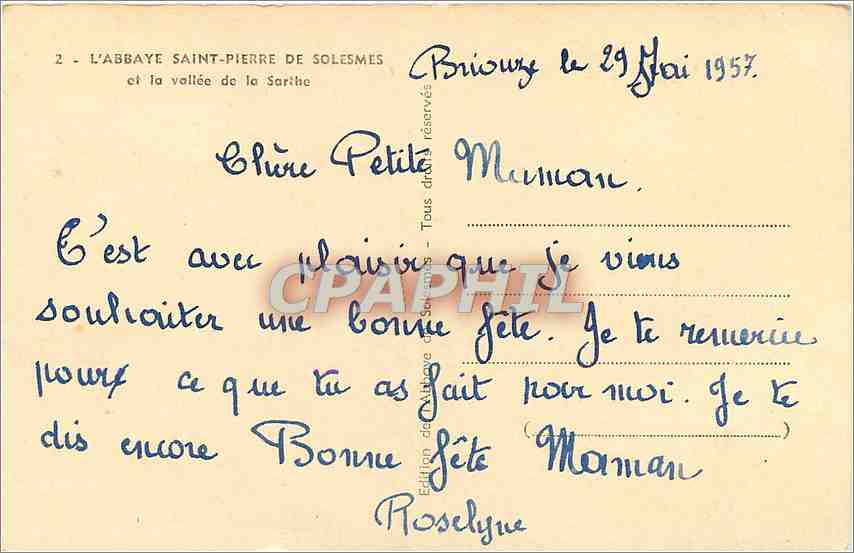 2 - L'ABBAYE SAINT-PIERRE DE SOLESMES
et la vallée de la Sarthe
Briouze le 29 Mai 1957.
Chère Petite Muman.
C'est avec plaisir que je viens
souhaiter une bonne fête. Je te remercie
pour ce que tu as fait pour moi. Je te
dis encore Bonne fête Maman
Roselyne
Edition de l'Abbaye de Solesmes - Tous droits réservés
CPAPHIL